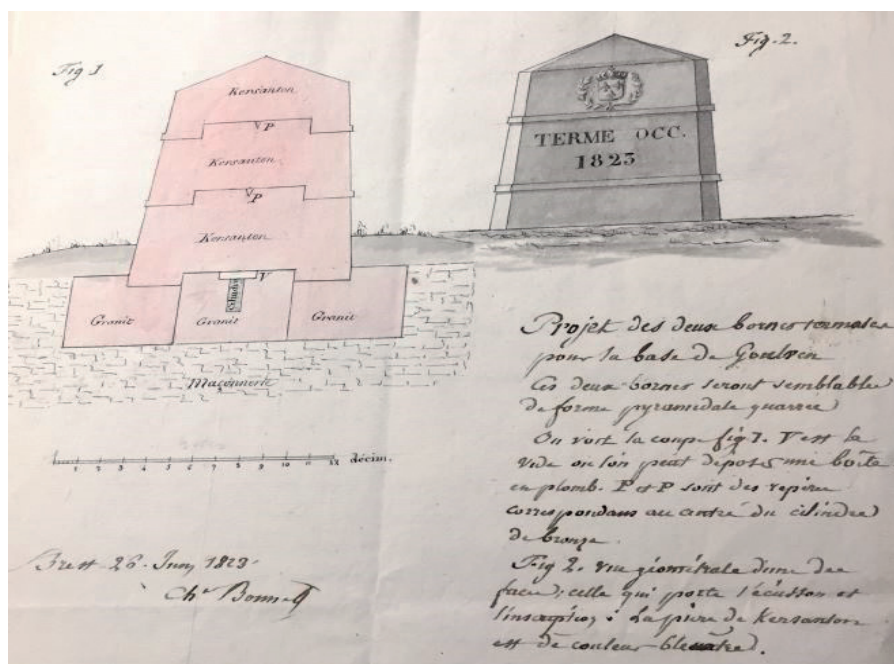 Fig 1
Kersanton
V P
Kersanton
V P
Kersanton
V
Cilindre
Granit Granit Granit
Maçonnerie
1 2 3 4 5 6 7 8 9 10 11 12 décim.
Brest 26 Juin 1823.
Ch.
Fig. 2.
TERME OCC.
1823
Projet des deux bornes termales
pour la base de Goulven
Ces deux bornes seront semblable
de forme pyramidale quarrée
On voit la coupe fig 1. V est le
vide où l'on peut déposer une boîte
en plomb. P et P sont des repères
correspondans au centre du cilindre
de bronze.
Fig 2. vue géométrale d'une des
faces; celle qui porte l'écusson et
l'inscription; La pierre de Kersanton
est de couleur bleuâtre.